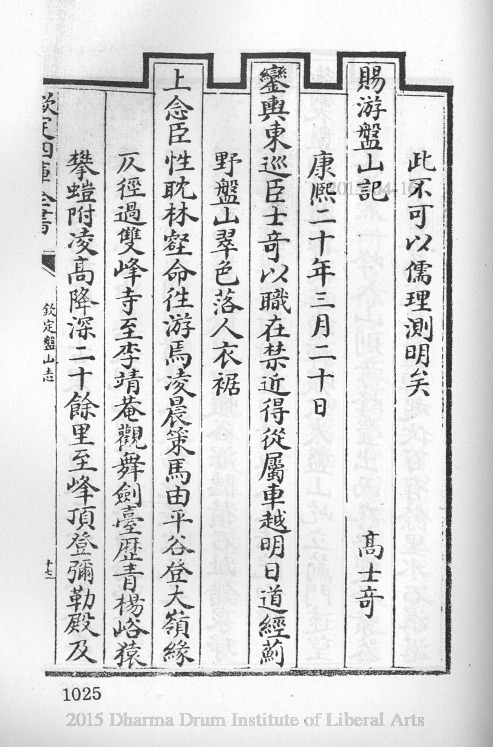 此不可以儒理測明矣
賜游盤山記
高士奇
康熙二十年三月二十日
鑾輿東巡臣士奇以職在禁近得從屬車越明日道經薊
野盤山翠色落人衣裾
上念臣性耽林壑命往游焉凌晨策馬由平谷登大嶺緣
仄徑過雙峰寺至李靖菴觀舞劍臺歷青楊峪猿
攀螘附凌高降深二十餘里至峰頂登彌勒殿及
欽定四庫全書
欽定盤山志
十七
1025
2015 Dharma Drum Institute of Liberal Arts